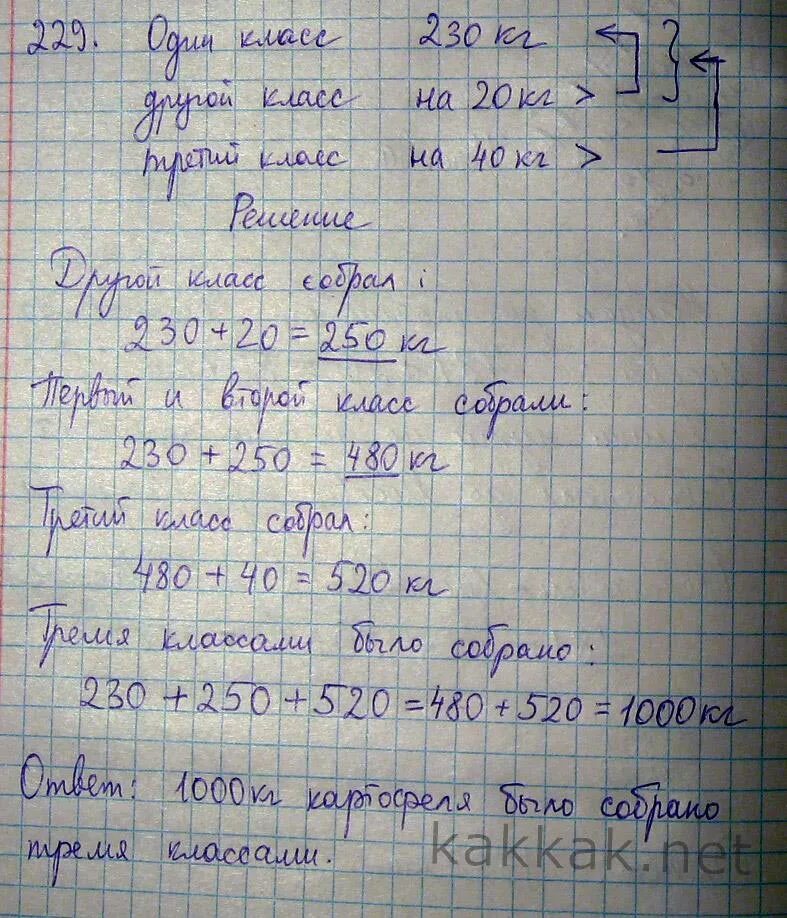 229. Один класс 230 кг
другой класс на 20 кг >
третий класс на 40 кг >
Решение
Другой класс собрал:
230 + 20 = 250 кг
Первый и второй класс собрали:
230 + 250 = 480 кг
Третий класс собрал:
480 + 40 = 520 кг
Тремя классами было собрано:
230 + 250 + 520 = 480 + 520 = 1000 кг
Ответ: 1000 кг картофеля было собрано
тремя классами.
kakkak.net